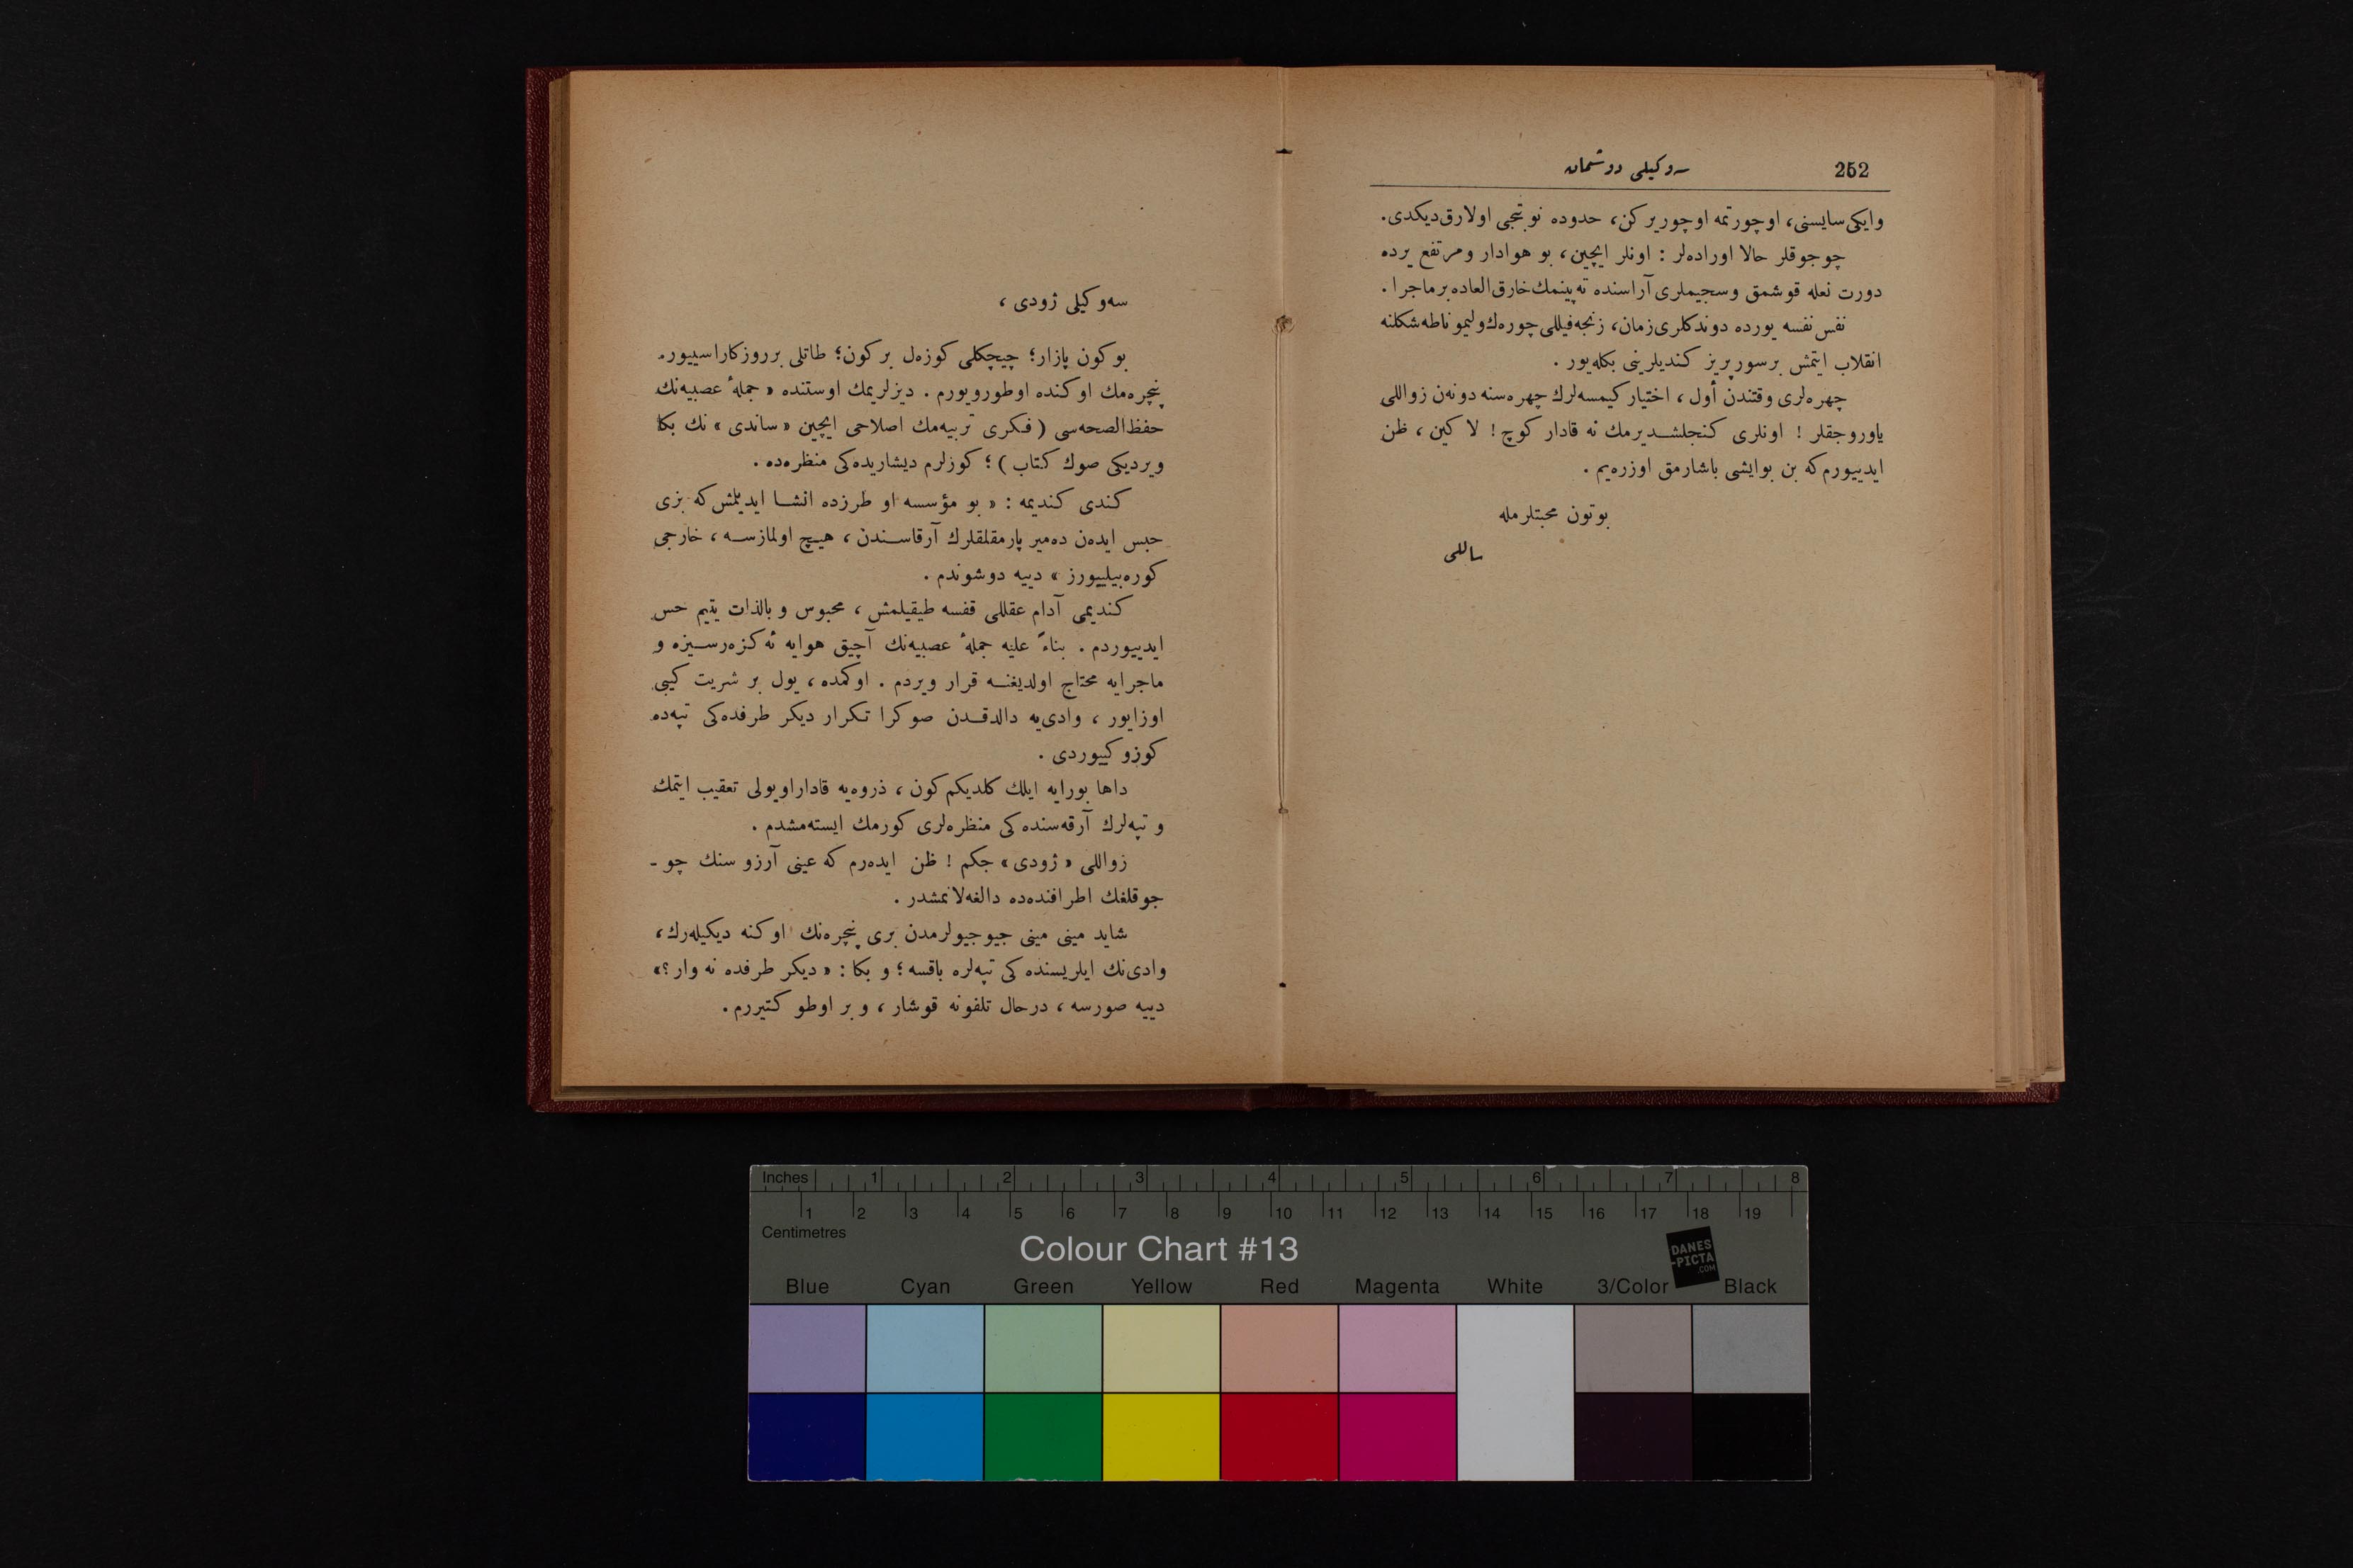 252
سه‌وكیلی دوشمان
وایكی سایسنی، اوچورتمه اوچوریركن، حدوده نوبتجی اولارق دیكدی.
چوجوقلر حالا اوراده‌لر : اونلر ایچین، بو هوادار ومرتفع یرده
دورت نعله قوشمق وسجیملری آراسنده ته‌پینمك خارق‌العاده برماجرا.
نفس نفسه یورده دوندكلری زمان، زنجه‌فیللی چوره‌ك ولیموناطه شكلنه
انقلاب ایتمش برسورپریز كندیلرینی بكله‌یور .
چهره‌لری وقتندن أول ، اختیار كیمسه‌لرك چهره‌سنه دونه‌ن زواللی
یاوروجقلر ! اونلری كنجلشدیرمك نه قادار كوچ ! لاكین ، ظن
ایدییورم‌كه بن بوایشی باشارمق اوزره‌یم .
بوتون محبتلرمله
ساللی
سه‌وكیلی ژودی ،
بوكون پازار؛ چیچكلی كوزه‌ل بركون؛ طاتلی برروزكاراسییور.
پنچره‌مك اوكنده اوطورویورم . دیزلریمك اوستنده « جملهٔ عصبیه‌نك
حفظ‌الصحه‌سی ( فكری تربیه‌مك اصلاحی ایچین « ساندی » نك بكا
ویردیكی صوك كتاب ) ؛ كوزلرم دیشاریده‌كی منظره‌ده .
كندی كندیمه : « بو مؤسسه او طرزده انشا ایدیلمش‌كه بزی
حبس ایده‌ن ده‌میر پارمقلقلرك آرقاسندن ، هیچ اولمازسه ، خارجی
كوره‌بیلییورز » دییه دوشوندم .
كندیمی آدام عقللی قفسه طیقیلمش ، محبوس و بالذات یتیم حس
ایدییوردم . بناءً علیه جملهٔ عصبیه‌نك آچیق هوایه ئه‌كزه‌رسیزه و
ماجرایه محتاج اولدیغنه قرار ویردم . اوكمده ، یول بر شریت كیبی
اوزایور ، وادی‌یه دالدقدن صوكرا تكرار دیكر طرفده‌كی تپه‌ده
كوزوكییوردی .
داها بورایه ایلك كلدیكم كون ، ذروه‌یه قاداراویولی تعقیب ایتمك
و تپه‌لرك آرقه‌سنده‌كی منظره‌لری كورمك ایسته‌مشدم .
زواللی « ژودی » جكم ! ظن ایده‌رم كه عینی آرزو سنك چو -
جوقلغك اطرافنده‌ده دالغه‌لانمشدر .
شاید مینی مینی جیوجیولرمدن بری پنچره‌نك اوكنه دیكیله‌رك ،
وادی‌نك ایلریسنده‌كی تپه‌لره باقسه ؛ و بكا : « دیكر طرفده نه وار ؟»
دییه صورسه ، درحال تلفونه قوشار ، و بر اوطو كتیررم .
Inches 1 2 3 4 5 6 7 8
1 2 3 4 5 6 7 8 9 10 11 12 13 14 15 16 17 18 19
Centimetres
Colour Chart #13
DANES
-PICTA
.COM
Blue Cyan Green Yellow Red Magenta White 3/Color Black